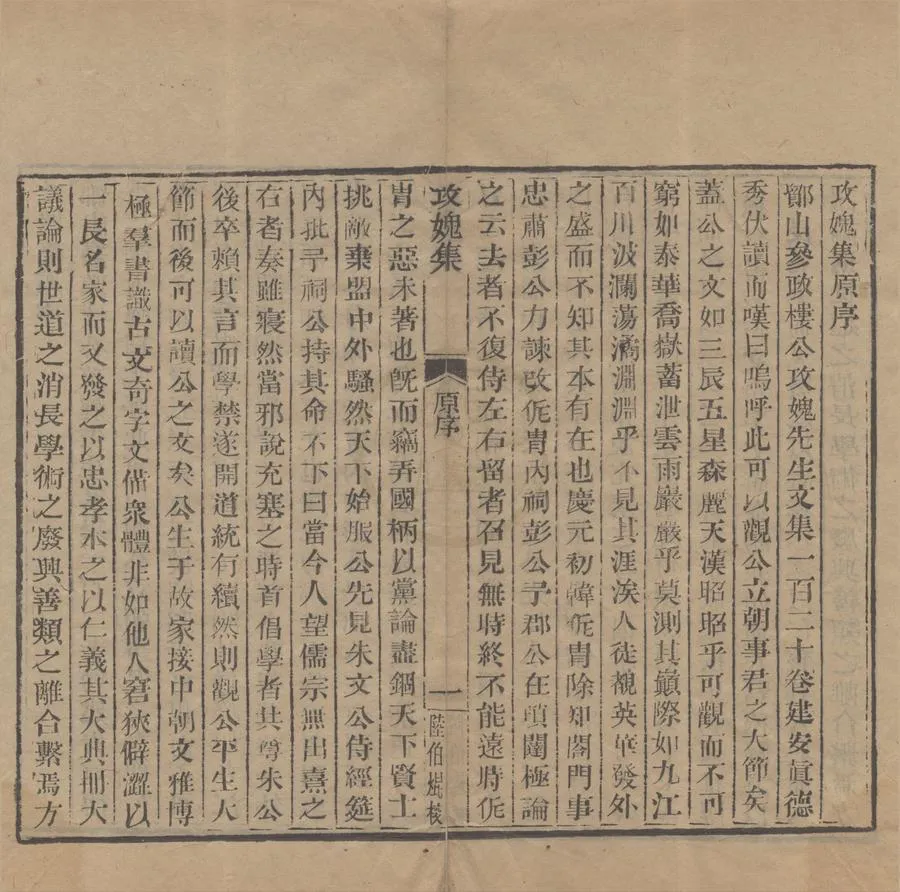 攻媿集原序
鄮山參政樓公攻媿先生文集一百二十卷建安眞德
秀伏讀而嘆曰嗚呼此可以觀公立朝事君之大節矣
蓋公之文如三辰五星森麗天漢昭昭乎可觀而不可
窮如泰華喬嶽蓄泄雲雨巖巖乎莫測其巔際如九江
百川波瀾蕩潏淵淵乎不見其涯涘人徒覩英華發外
之盛而不知其本有在也慶元初韓侂胄除知閤門事
忠肅彭公力諫攺侂胄內祠彭公予郡公在瑣闥極論
之云去者不復侍左右留者召見無時終不能遠時侂
攻媿集
原序
一
陸伯焜校
胄之惡未著也旣而竊弄國柄以黨論盡錮天下賢士
挑敵棄盟中外騷然天下始服公先見朱文公侍經筵
內批予祠公持其命不下曰當今人望儒宗無出熹之
右者奏雖寢然當邪說充塞之時首倡學者共尊朱公
後卒賴其言而學禁遂開道統有續然則觀公平生大
節而後可以讀公之文矣公生于故家接中朝文雅博
極羣書識古文奇字文備衆體非如他人窘狹僻澀以
一長名家而又發之以忠孝本之以仁義其大典冊大
議論則世道之消長學術之廢興善類之離合繫焉方